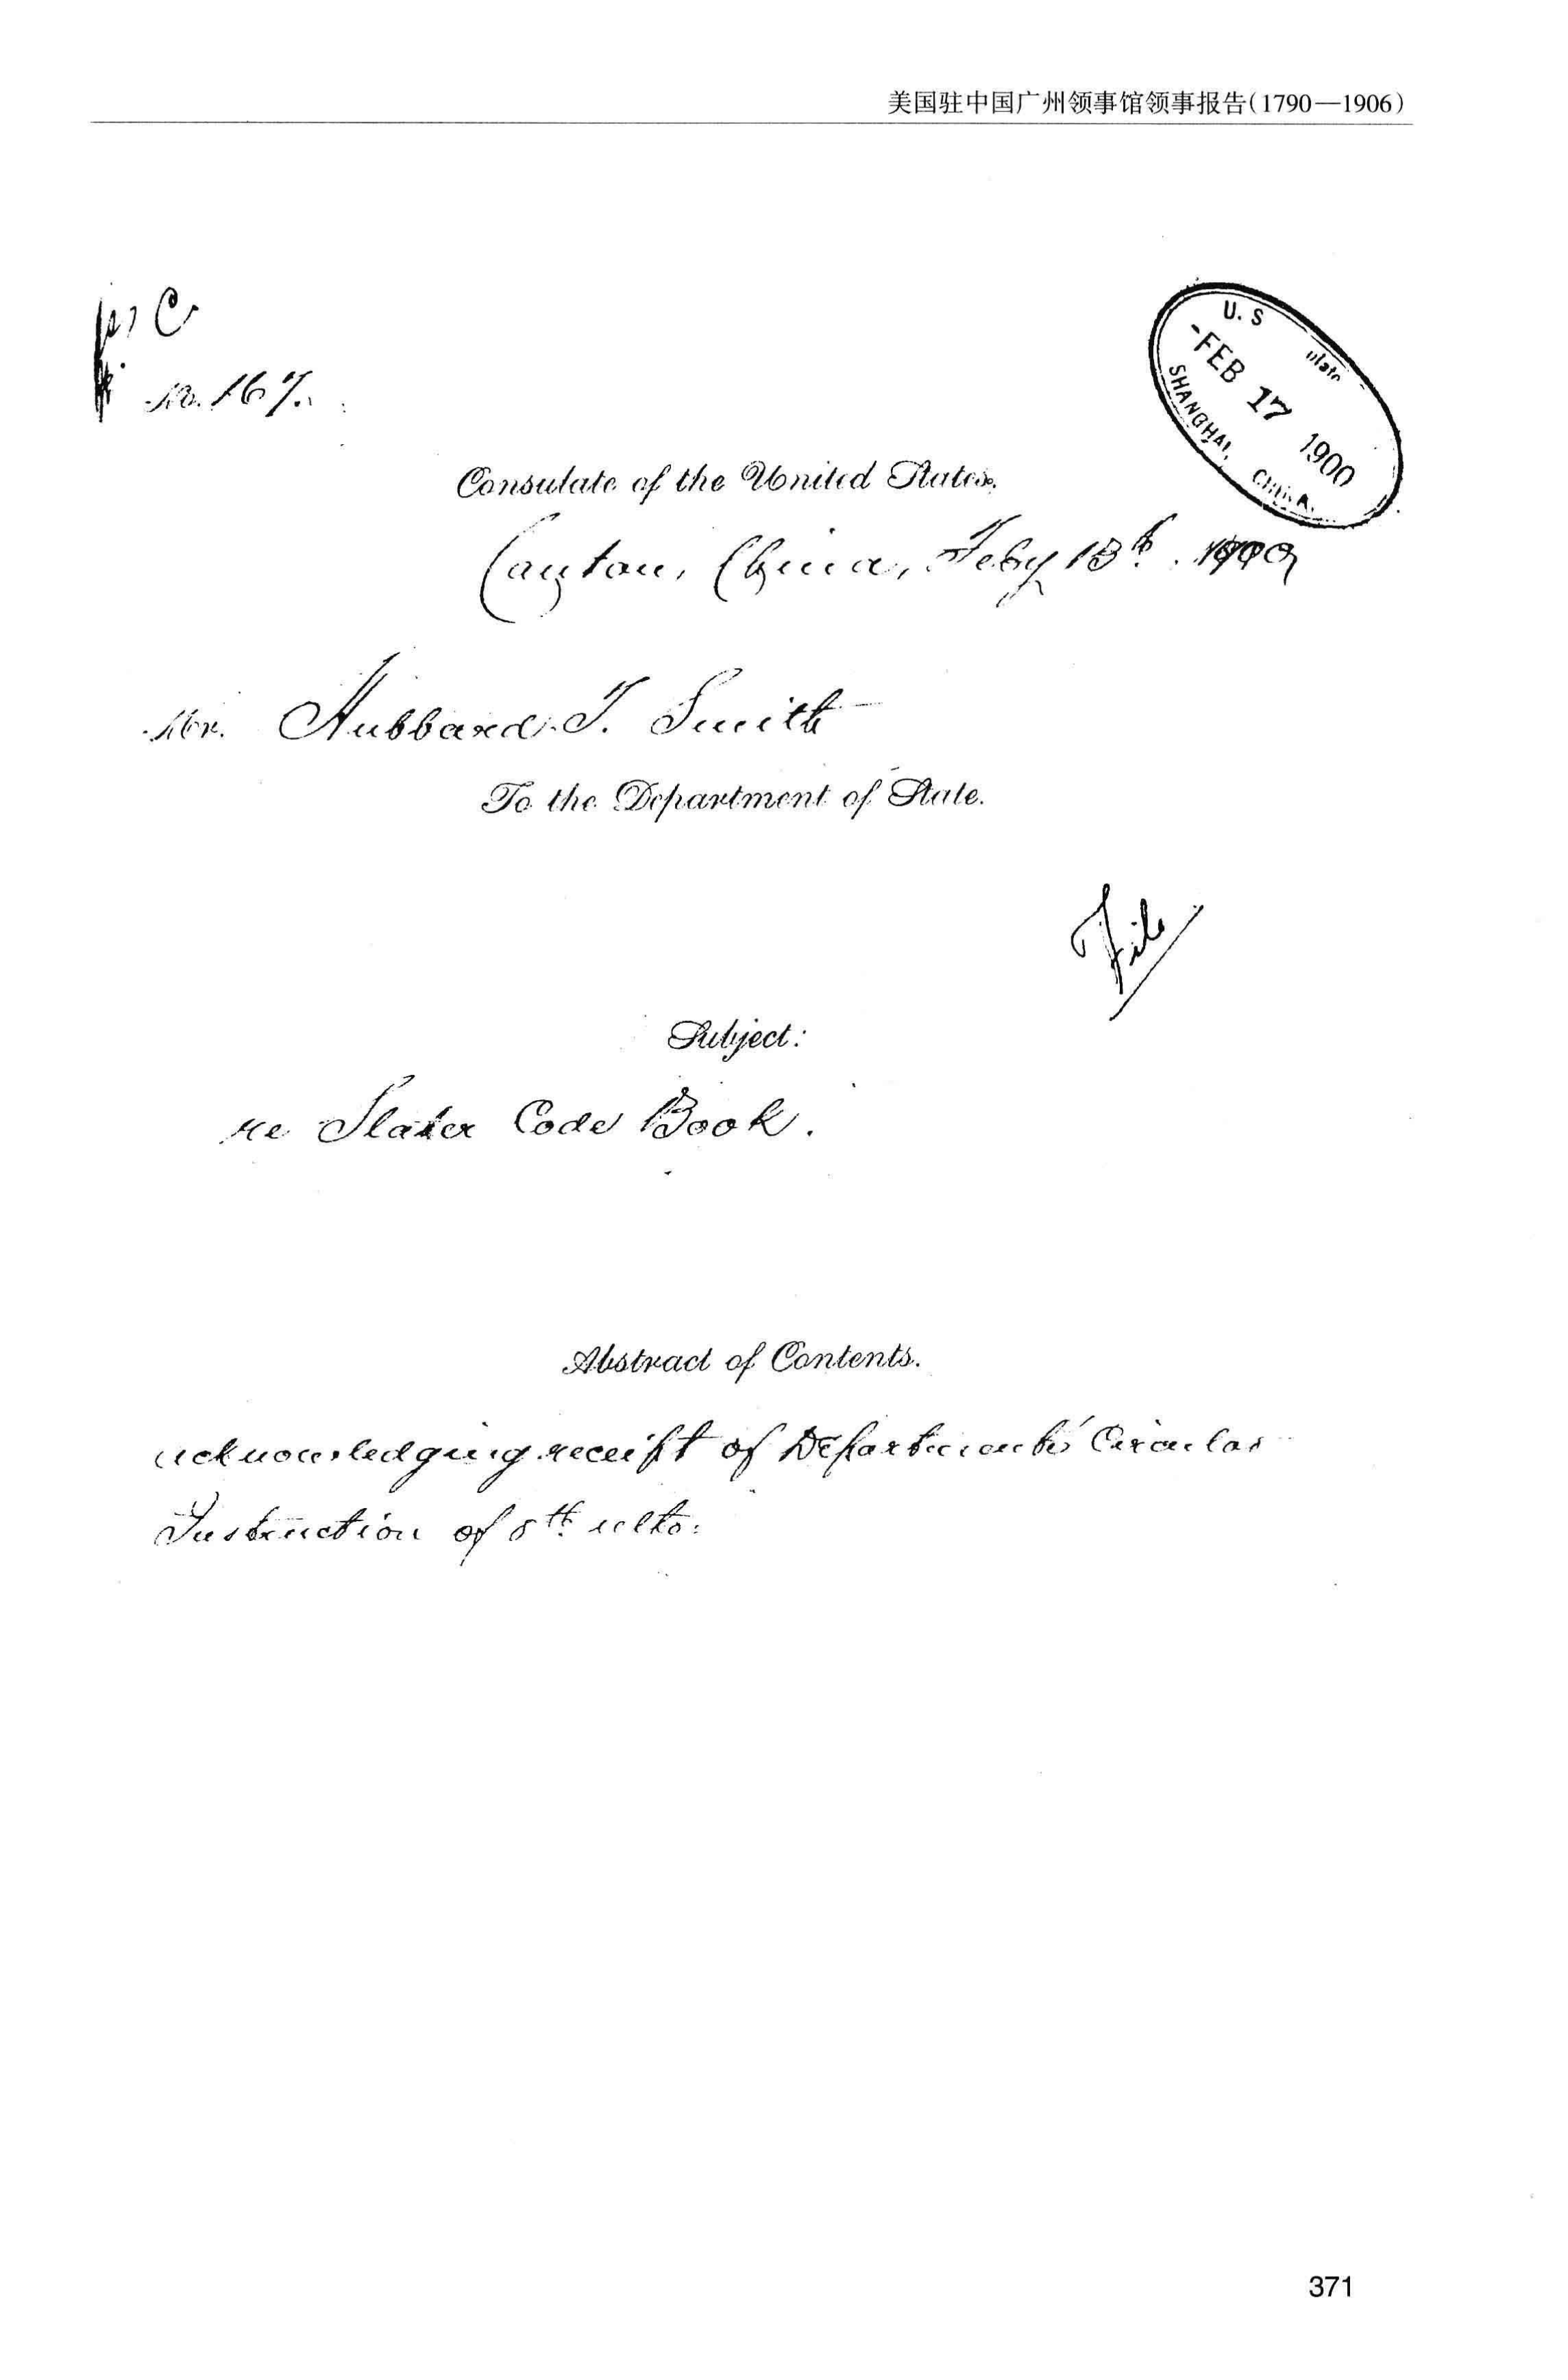 美国驻中国广州领事馆领事报告(1790—1906)
No. 167.
U. S
FEB 17 1900
SHANGHAI, CHINA.
Consulate of the United States,
Canton, China, Feby 13th. 1900
Mr. Hubbard T. Smith
To the Department of State.
File
Subject:
re Slater Code Book.
Abstract of Contents.
acknowledging receipt of Department's Circular
Instruction of 8th ulto:
371